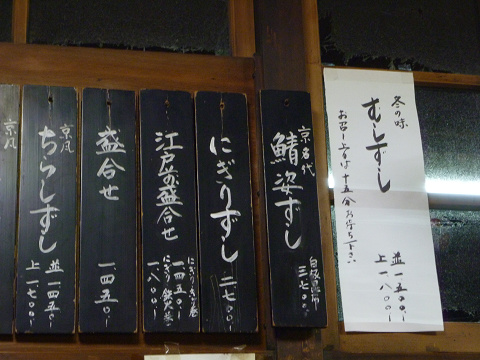 冬の味
むしずし
お召し上りは十五分お待ち下さい
並 一五〇〇、
上 一八〇〇、
京名代
鯖姿ずし
三七〇〇、
にぎりずし 二七〇〇、
江戸前盛合せ
一四五〇、
一八〇〇、
盛合せ
一、四五〇、
京風
ちらしずし
並 一四五〇、
上 一七〇〇、
京風